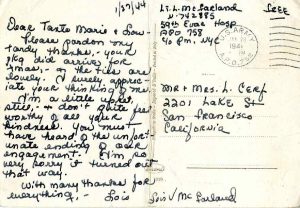 1/27/44
Dear Tante Marie & Lou-
Please pardon my
tardy thanks, - you'r
pkg did arrive for
Xmas, - & the ties are
lovely. I surely appreci-
ate your thinking of me.
I'm a little upset
still, - don't quite feel
worthy of all your
kindness. You must
have heard of the unfort-
unate ending of our
engagement. I'm so
very sorry it turned out
that way.
With many thanks for
everything, - Lois
Lt. L. McFarland
N-742885
59th Evac Hosp
APO 758
℅ P.M. NYC
FREE
U.S. ARMY
A.P.O.
Mr & Mrs. L. Cerf
2201 Lake St
San Francisco
California
Lois V McFarland